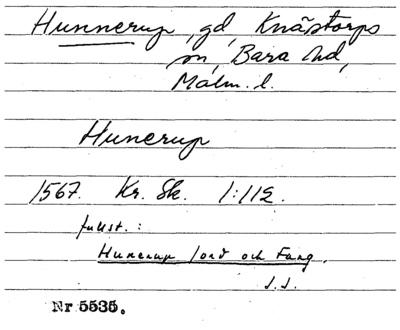 Hunnerup, gd, Knästorps
sn, Bara hd,
Malm. l.
Hunerup
1567. Kr. Sk. 1:112.
fullst.:
Hunerup Jord och Fang.
J.J.
Nr 5535.